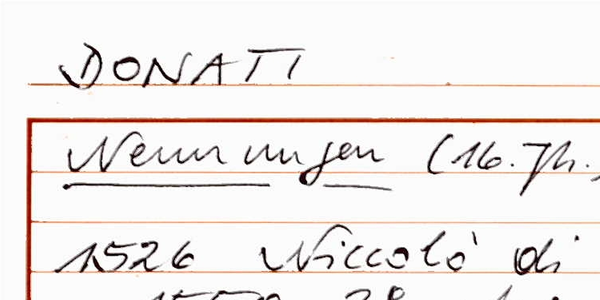 DONATI
Nennungen (16. Jh.)
1526 Niccolò di